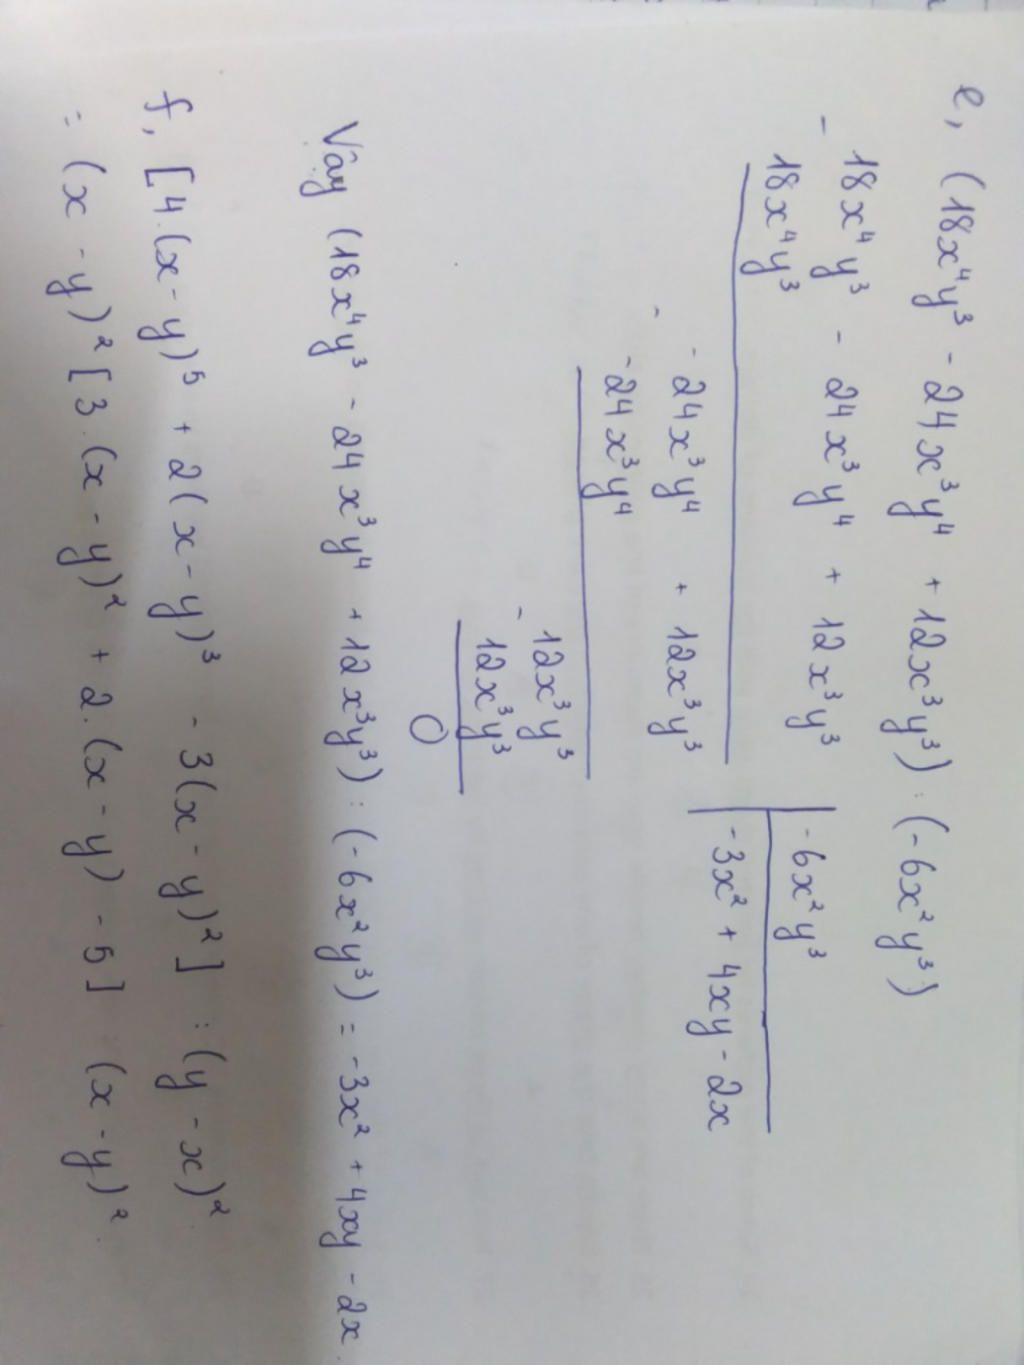 e, (18x⁴y³ - 24x³y⁴ + 12x³y³) : (-6x²y³)
- 18x⁴y³ - 24x³y⁴ + 12x³y³ | -6x²y³
18x⁴y³ | -3x² + 4xy - 2x
- -24x³y⁴ + 12x³y³
-24x³y⁴
- 12x³y³
12x³y³
0
Vậy (18x⁴y³ - 24x³y⁴ + 12x³y³) : (-6x²y³) = -3x² + 4xy - 2x.
f, [4.(x-y)⁵ + 2(x-y)³ - 3(x-y)²] : (y-x)²
= (x-y)² [3.(x-y)² + 2.(x-y) - 5] (x-y)².